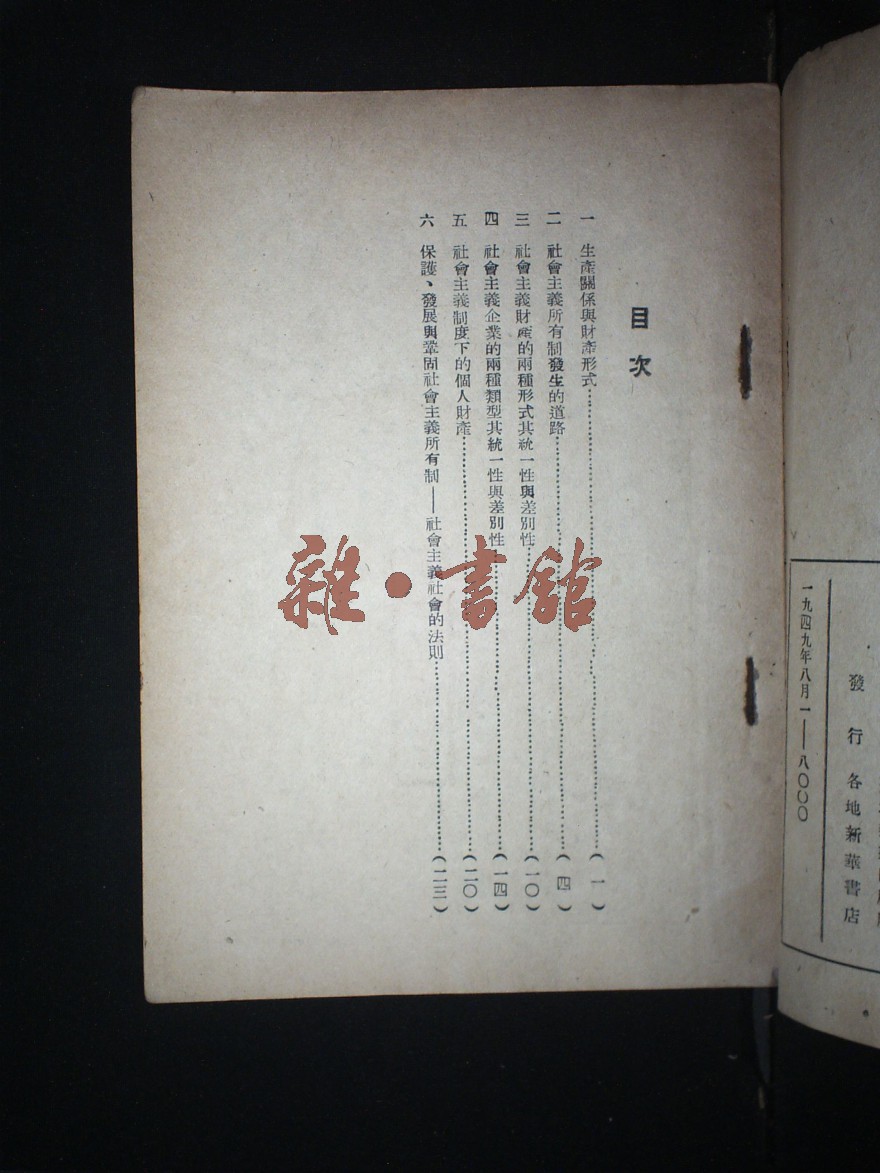 發行 各地新華書店
一九四九年八月一——八〇〇〇
目次
一 生產關係與財產形式……(一)
二 社會主義所有制發生的道路……(四)
三 社會主義財產的兩種形式其統一性與差別性……(一〇)
四 社會主義企業的兩種類型其統一性與差別性……(一四)
五 社會主義制度下的個人財產……(二〇)
六 保護、發展與鞏固社會主義所有制——社會主義社會的法則……(二三)
雜·書館